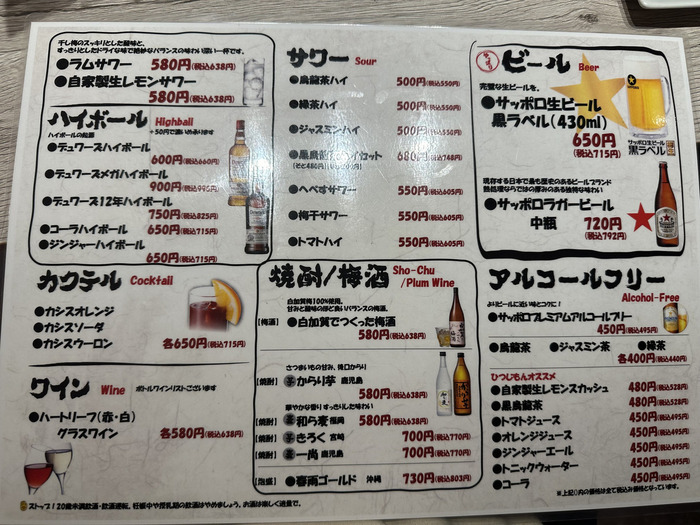 干し梅のスッキリとした酸味と、
すっきりとしたドライな味で絶妙なバランスの味わい深い一杯です。
●ラムサワー 580円(税込638円)
●自家製生レモンサワー
580円(税込638円)
ハイボール Highball
ハイボールの始祖 +50円で濃いめあります
●デュワーズハイボール
600円(税込660円)
●デュワーズメガハイボール
900円(税込995円)
●デュワーズ12年ハイボール
750円(税込825円)
●コーラハイボール 650円(税込715円)
●ジンジャーハイボール
650円(税込715円)
カクテル Cocktail
●カシスオレンジ
●カシスソーダ
●カシスウーロン 各650円(税込715円)
ワイン Wine ボトルワインリストございます
●ハートリーフ(赤・白)
グラスワイン 各580円(税込638円)
サワー Sour
●烏龍茶ハイ 500円(税込550円)
●緑茶ハイ 500円(税込550円)
●ジャスミンハイ 500円(税込550円)
●黒烏龍茶ハイセット 680円(税込748円)
●へべすサワー 550円(税込605円)
●梅干サワー 550円(税込605円)
●トマトハイ 550円(税込605円)
焼酎/梅酒 Sho-Chu
/Plum Wine
白加賀梅100%使用。
甘みと酸味のほど良いバランスの梅酒。
[梅酒] ●白加賀でつくった梅酒
580円(税込638円)
さつまいもの甘み、後口からり
[焼酎] 芋 からり芋 鹿児島
580円(税込638円)
華やかな香り すっきりした味わい
[焼酎] 麦 和ら麦 福岡 580円(税込638円)
[焼酎] 芋 きろく 宮崎 700円(税込770円)
[焼酎] 芋 一尚 鹿児島 700円(税込770円)
[泡盛] ●春雨ゴールド 沖縄 730円(税込803円)
ビール Beer
完璧な生ビールを。
●サッポロ生ビール
黒ラベル(430ml)
650円
(税込715円)
サッポロ生ビール
黒ラベル
現存する日本で最も歴史のあるビールブランド
熱処理ならではの厚みのある独特な味わい
●サッポロラガービール
中瓶 720円
(税込792円)
アルコールフリー
Alcohol-Free
よりビールに近い味とコクに!
●サッポロプレミアムアルコールフリー
450円(税込495円)
●烏龍茶 ●ジャスミン茶 ●緑茶
各400円(税込440円)
ひつじもんオススメ
●自家製生レモンスカッシュ 480円(税込528円)
●黒烏龍茶 480円(税込528円)
●トマトジュース 450円(税込495円)
●オレンジジュース 450円(税込495円)
●ジンジャーエール 450円(税込495円)
●トニックウォーター 450円(税込495円)
●コーラ 450円(税込495円)
※上記()内の価格は全て税込み価格となっています。
ストップ!20歳未満飲酒・飲酒運転。妊娠中や授乳期の飲酒はやめましょう。お酒は楽しく適量で。